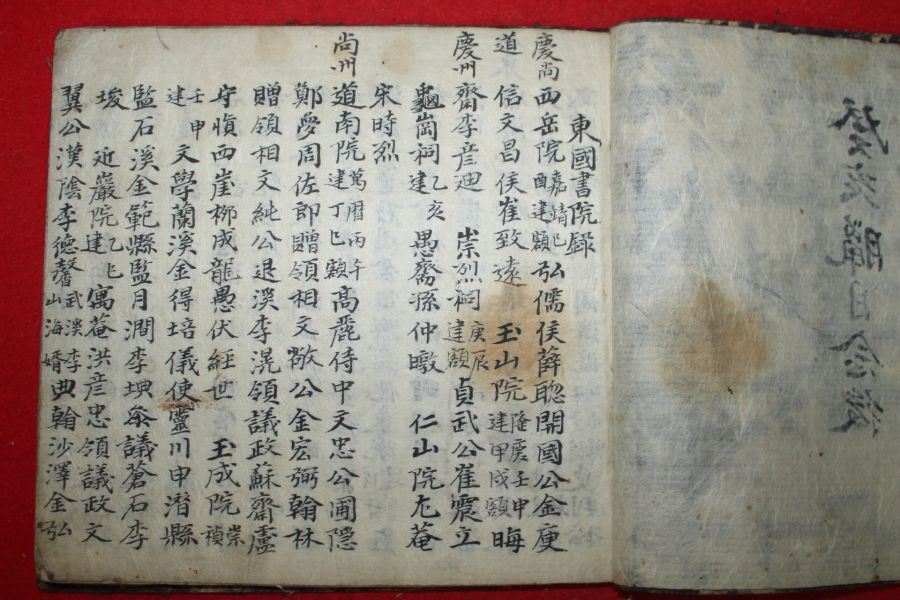 東國書院錄
慶尚 西岳院 嘉靖巳酉建額 弘儒侯薛聰開國公金庾
道 信文昌侯崔致遠 玉山院 隆慶壬申建甲戌額 晦
慶州 齋李彦迪 崇烈祠 庚辰建額 貞武公崔震立
龜崗祠建乙亥 愚齋孫仲暾 仁山院尤菴
宋時烈
尚州 道南院 萬曆丙午建丁巳額 高麗侍中文忠公圃隱
鄭夢周佐郎贈領相文敬公金宏弼翰林
贈領相文純公退溪李滉領議政蘇齋盧
守愼西崖柳成龍愚伏經世 玉成院 崇禎
壬申建 文學蘭溪金得培儀使靈川申潛縣
監石溪金範縣監月澗李㙉參議蒼石李
埈 近巖院建乙巳 寓菴洪彦忠領議政文
翼公漢陰李德馨 李山海婿 典翰沙澤金弘